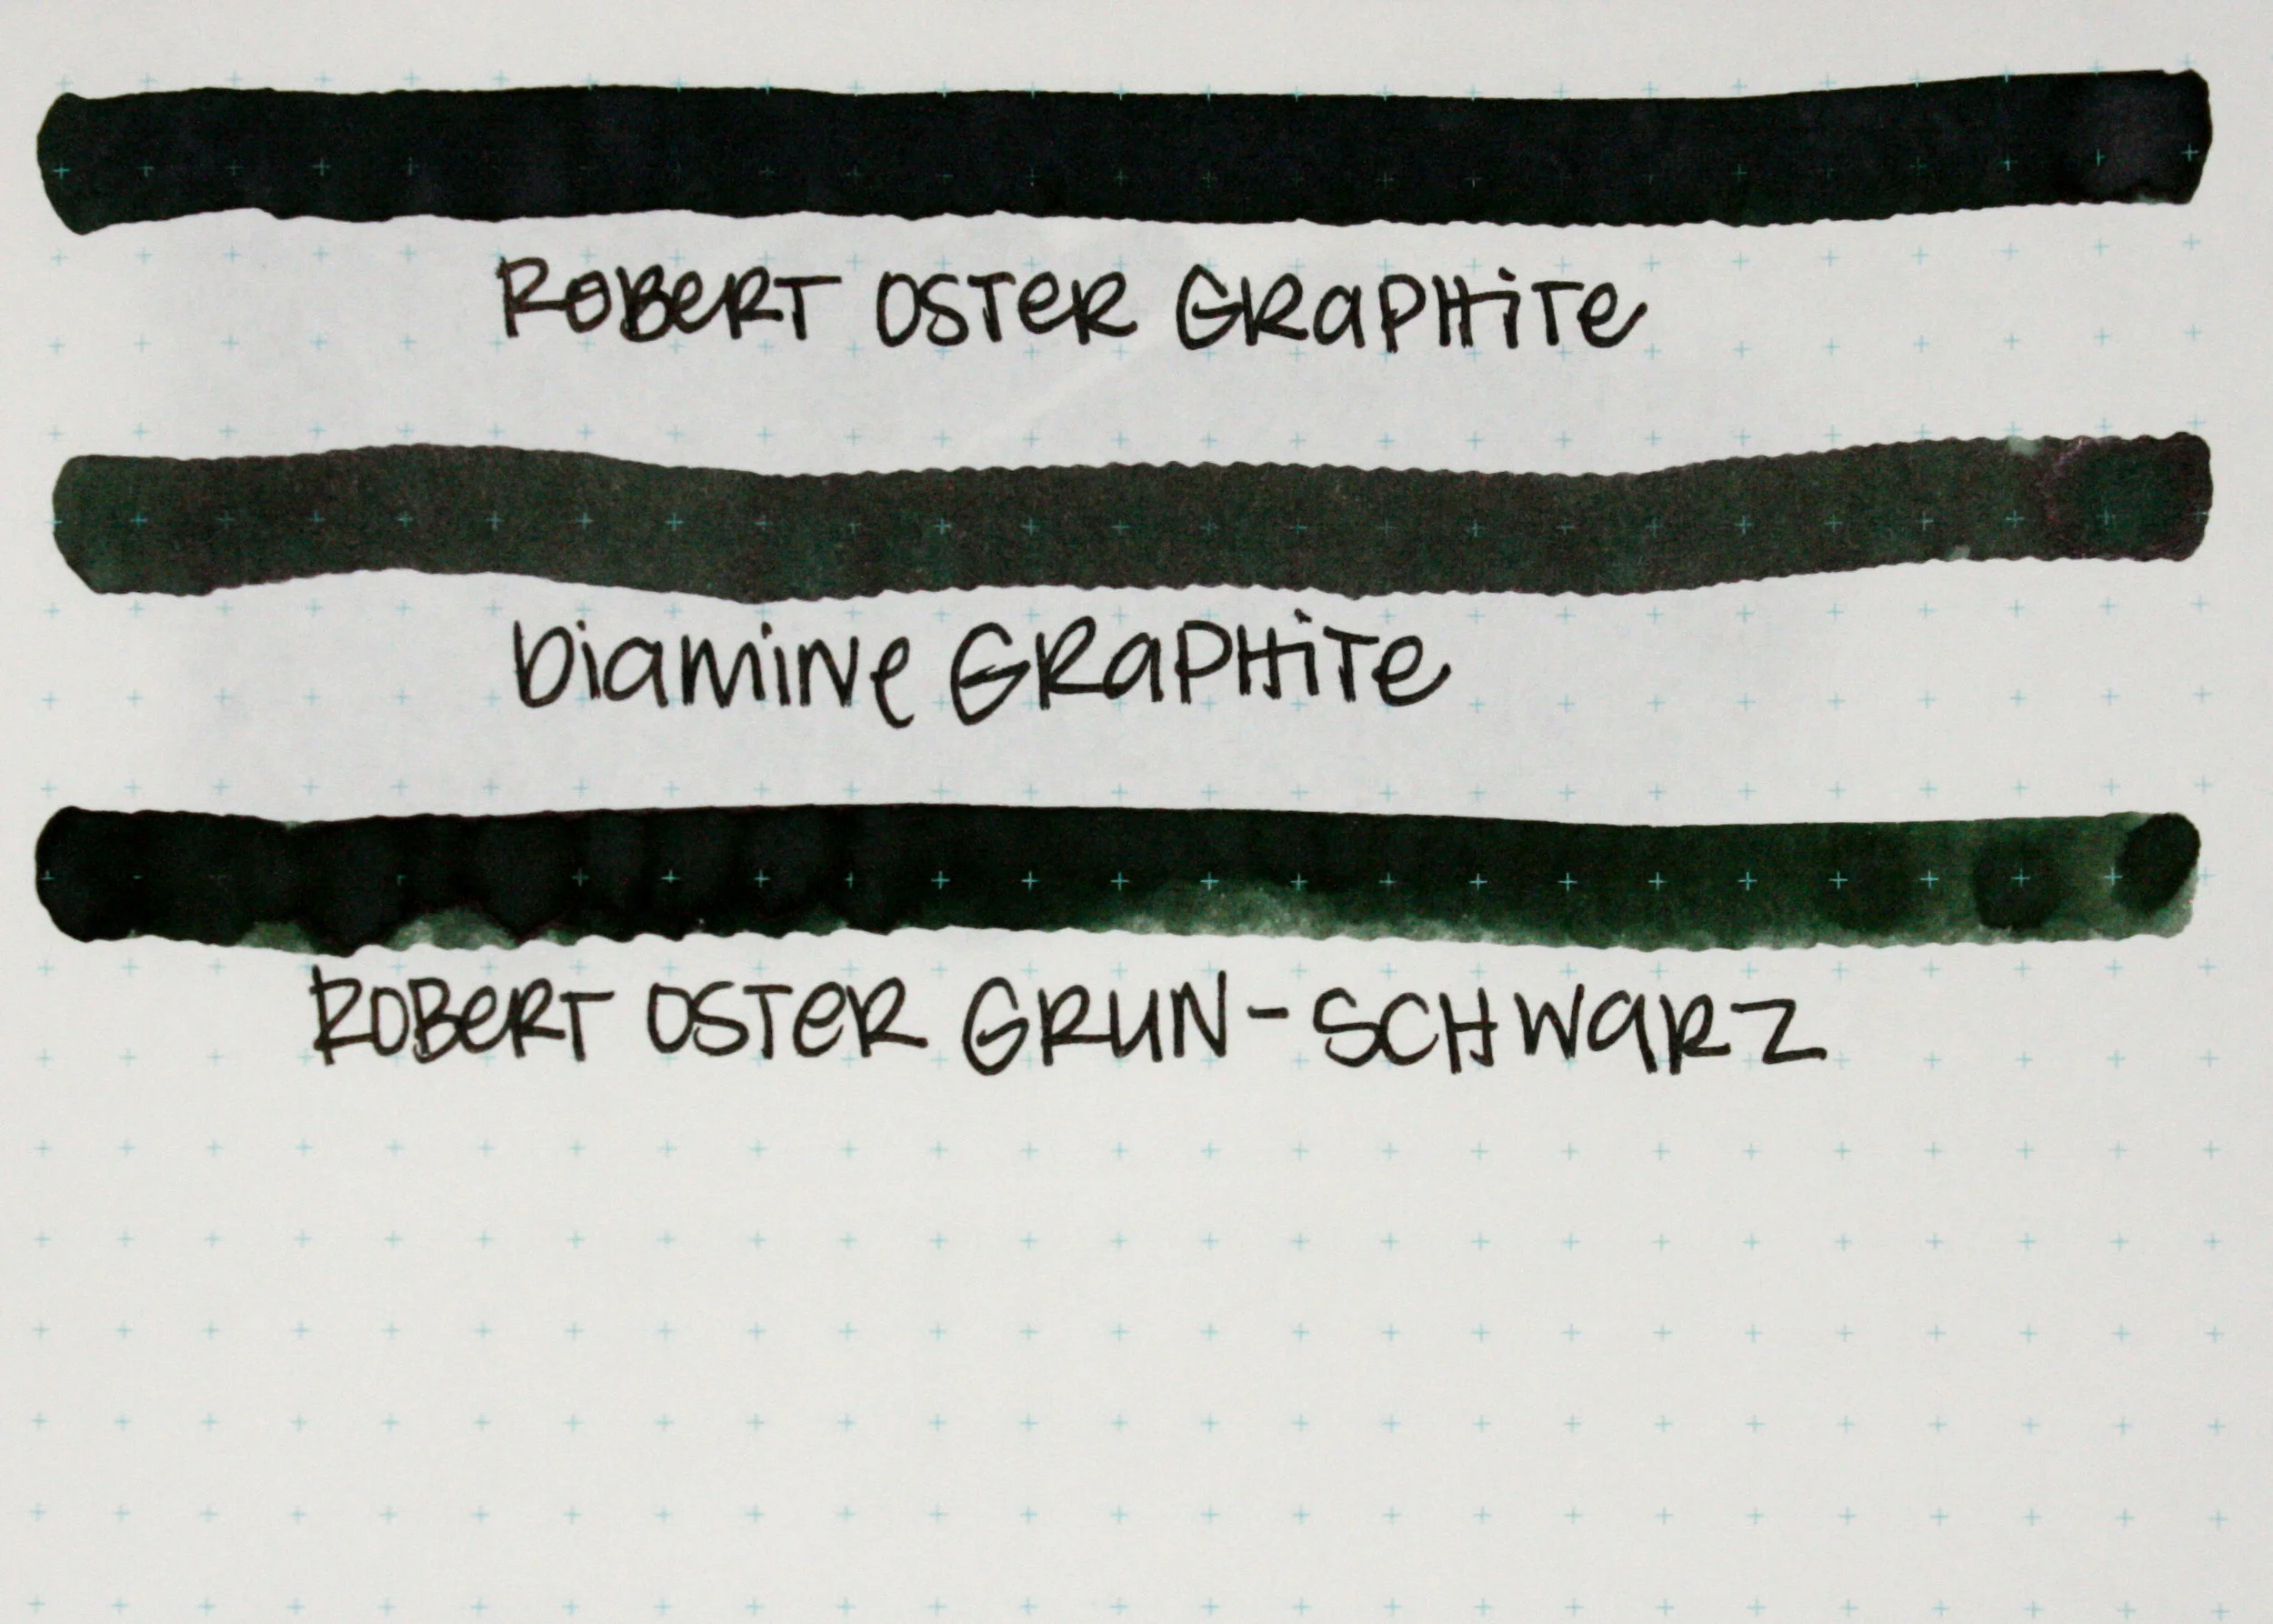 ROBERT OSTER GRAPHITE
DIAMINE GRAPHITE
ROBERT OSTER GRUN-SCHWARZ